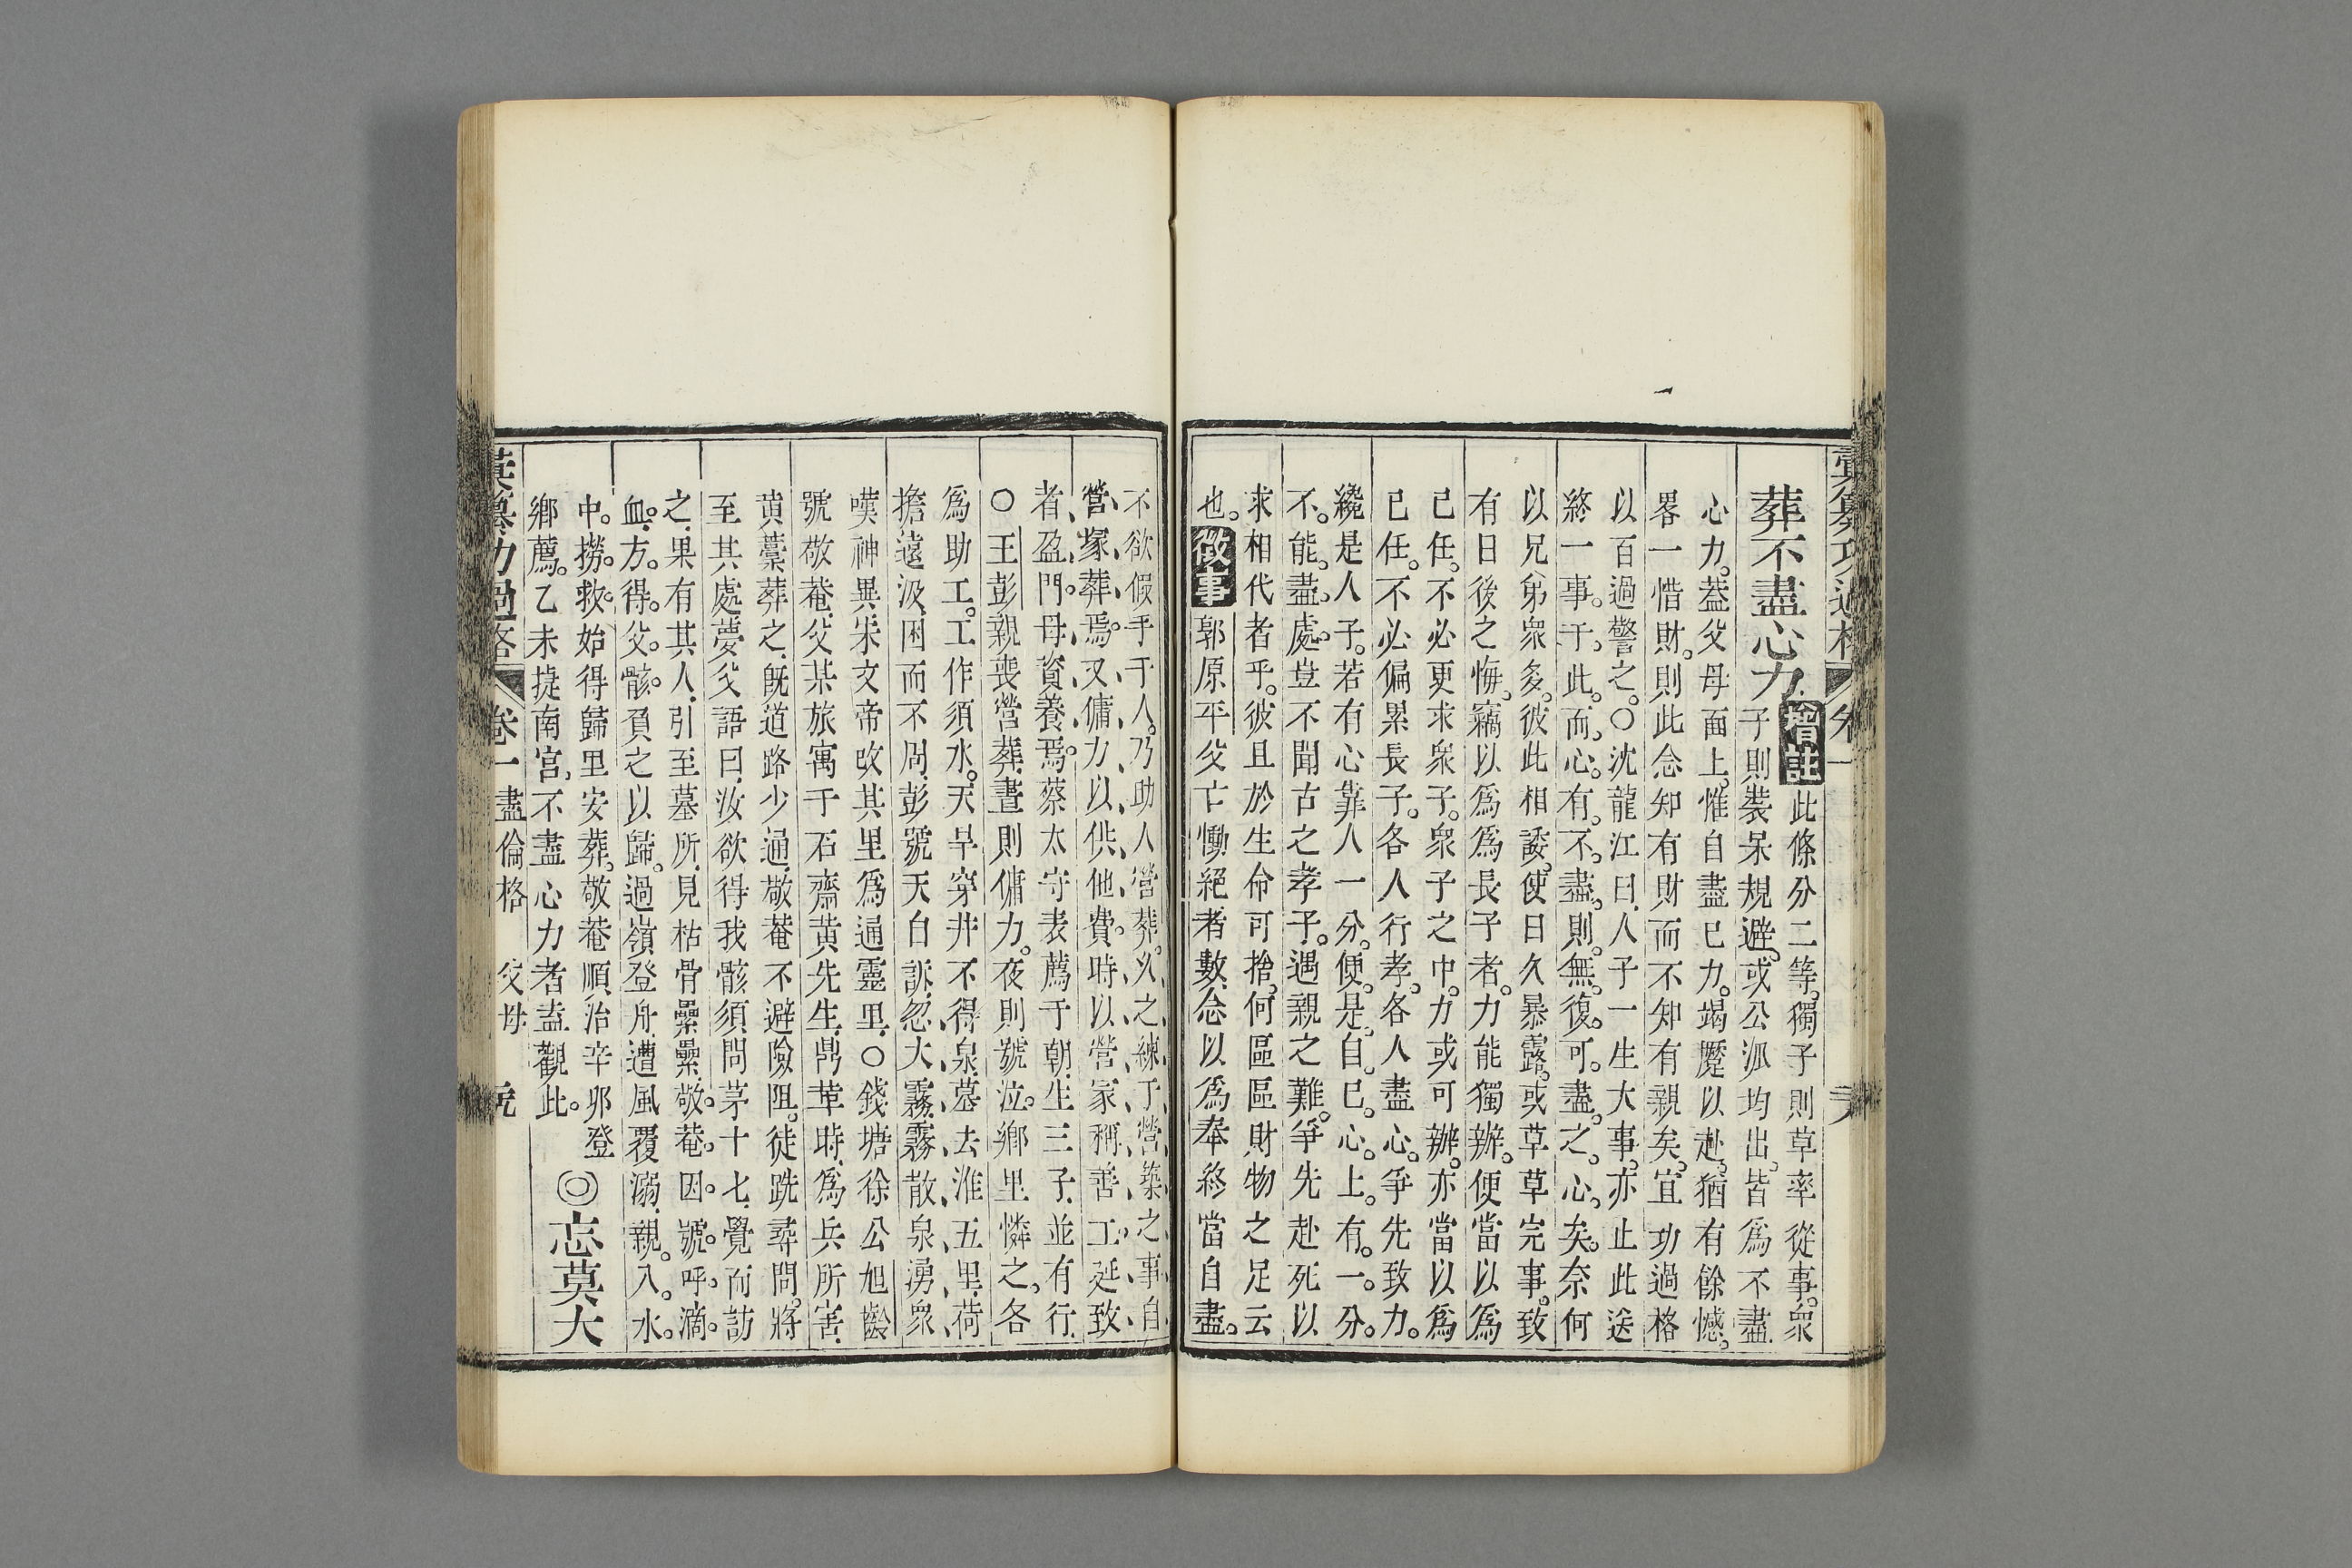 彙纂功過格 卷一
葬不盡心力增註此條分二等獨子則草率從事衆
子則裝呆規避或公派均出皆爲不盡
心力葢父母面上惟自盡己力竭蹷以赴猶有餘憾
畧一惜財則此念知有財而不知有親矣宜功過格
以百過警之○沈龍江曰人子一生大事亦止此送
終一事于此而心有不盡則無復可盡之心矣奈何
以兄弟衆多彼此相諉使日久暴露或草草完事致
有日後之悔竊以爲爲長子者力能獨辦便當以爲
己任不必更求衆子衆子之中力或可辦亦當以爲
己任不必偏累長子各人行孝各人盡心爭先致力
纔是人子若有心靠人一分便是自己心上有一分
不能盡處豈不聞古之孝子遇親之難爭先赴死以
求相代者乎彼且於生命可捨何區區財物之足云
也徵事郭原平父亡慟絕者數念以爲奉終當自盡
不欲假手于人乃助人營葬久之練于營築之事自
營塚葬焉又傭力以供他費時以營家稱善工延致
者盈門母資養焉蔡太守表薦于朝生三子並有行
○王彭親喪營葬晝則傭力夜則號泣鄉里憐之各
爲助工工作須水天旱穿井不得泉墓去淮五里荷
擔遠汲困而不周彭號天自訴忽大霧霧散泉湧衆
嘆神異宋文帝改其里爲通靈里○錢塘徐公旭齡
號敬菴父某旅寓于石齋黃先生鼎革時爲兵所害
黃藁葬之旣道路少通敬菴不避險阻徒跣尋問將
至其處夢父語曰汝欲得我骸須問茅十七覺而訪
之果有其人引至墓所見枯骨纍纍敬菴因號呼滴
血方得父骸負之以歸過嶺登舟遭風覆溺親入水
中撈救始得歸里安葬敬菴順治辛卯登
鄉薦乙未捷南宮不盡心力者盍觀此◎忘莫大
彙纂功過格 卷一 盡倫格 父母